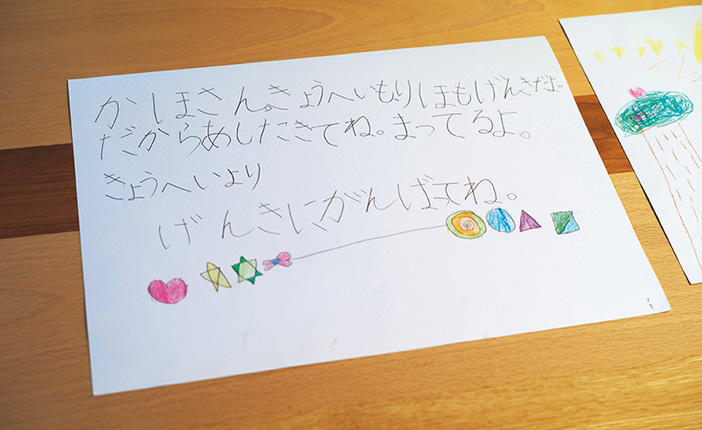 かほさん。きょうへいもりほもげんきだよ。
だからあしたきてね。まってるよ。
きょうへいより
げんきにがんばてね。